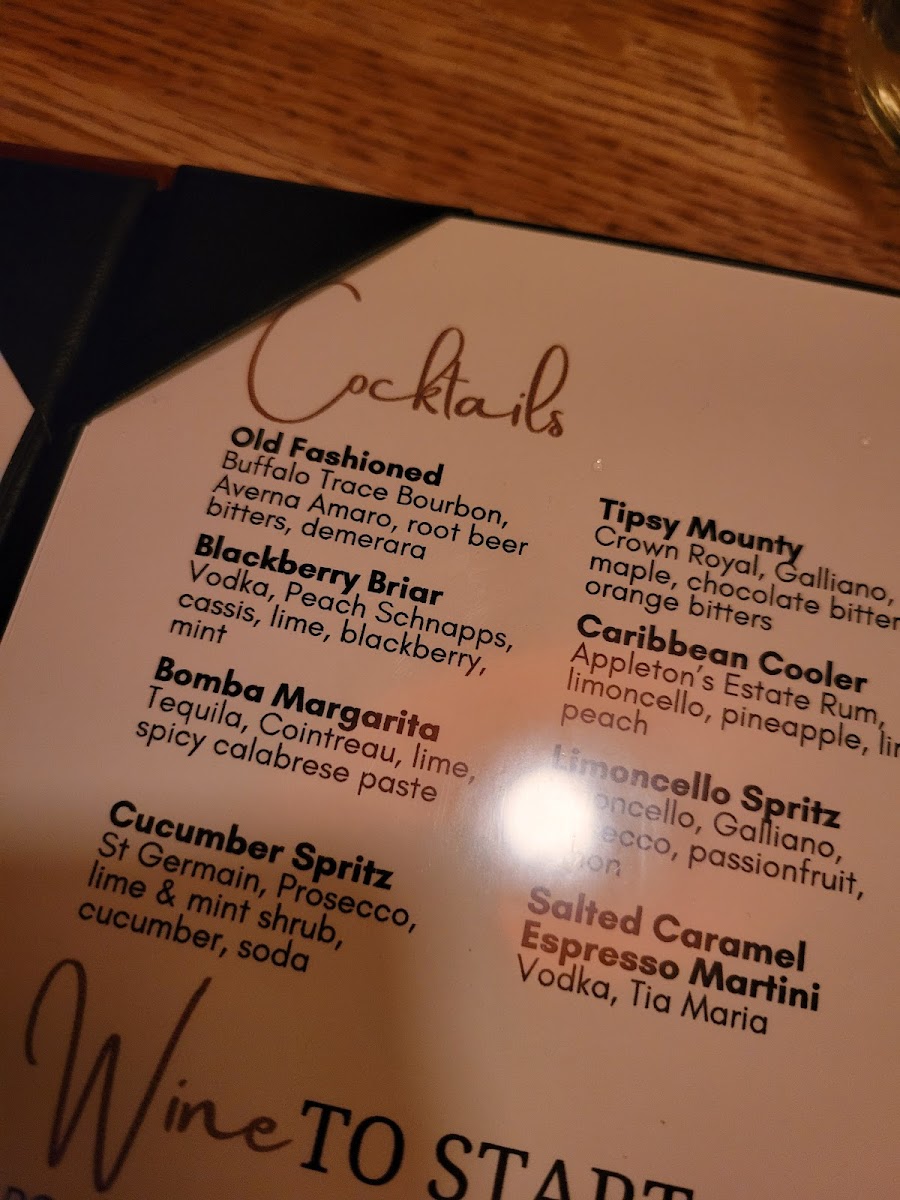 Cocktails
Old Fashioned
Buffalo Trace Bourbon,
Averna Amaro, root beer
bitters, demerara
Blackberry Briar
Vodka, Peach Schnapps,
cassis, lime, blackberry,
mint
Bomba Margarita
Tequila, Cointreau, lime,
spicy calabrese paste
Cucumber Spritz
St Germain, Prosecco,
lime & mint shrub,
cucumber, soda
Tipsy Mounty
Crown Royal, Galliano,
maple, chocolate
orange bitters
Caribbean Cooler
Appleton's Estate Rum,
limoncello, pineapple,
peach
Limoncello Spritz
Galliano,
passionfruit,
Salted Caramel
Espresso Martini
Vodka, Tia Maria
Wine TO START